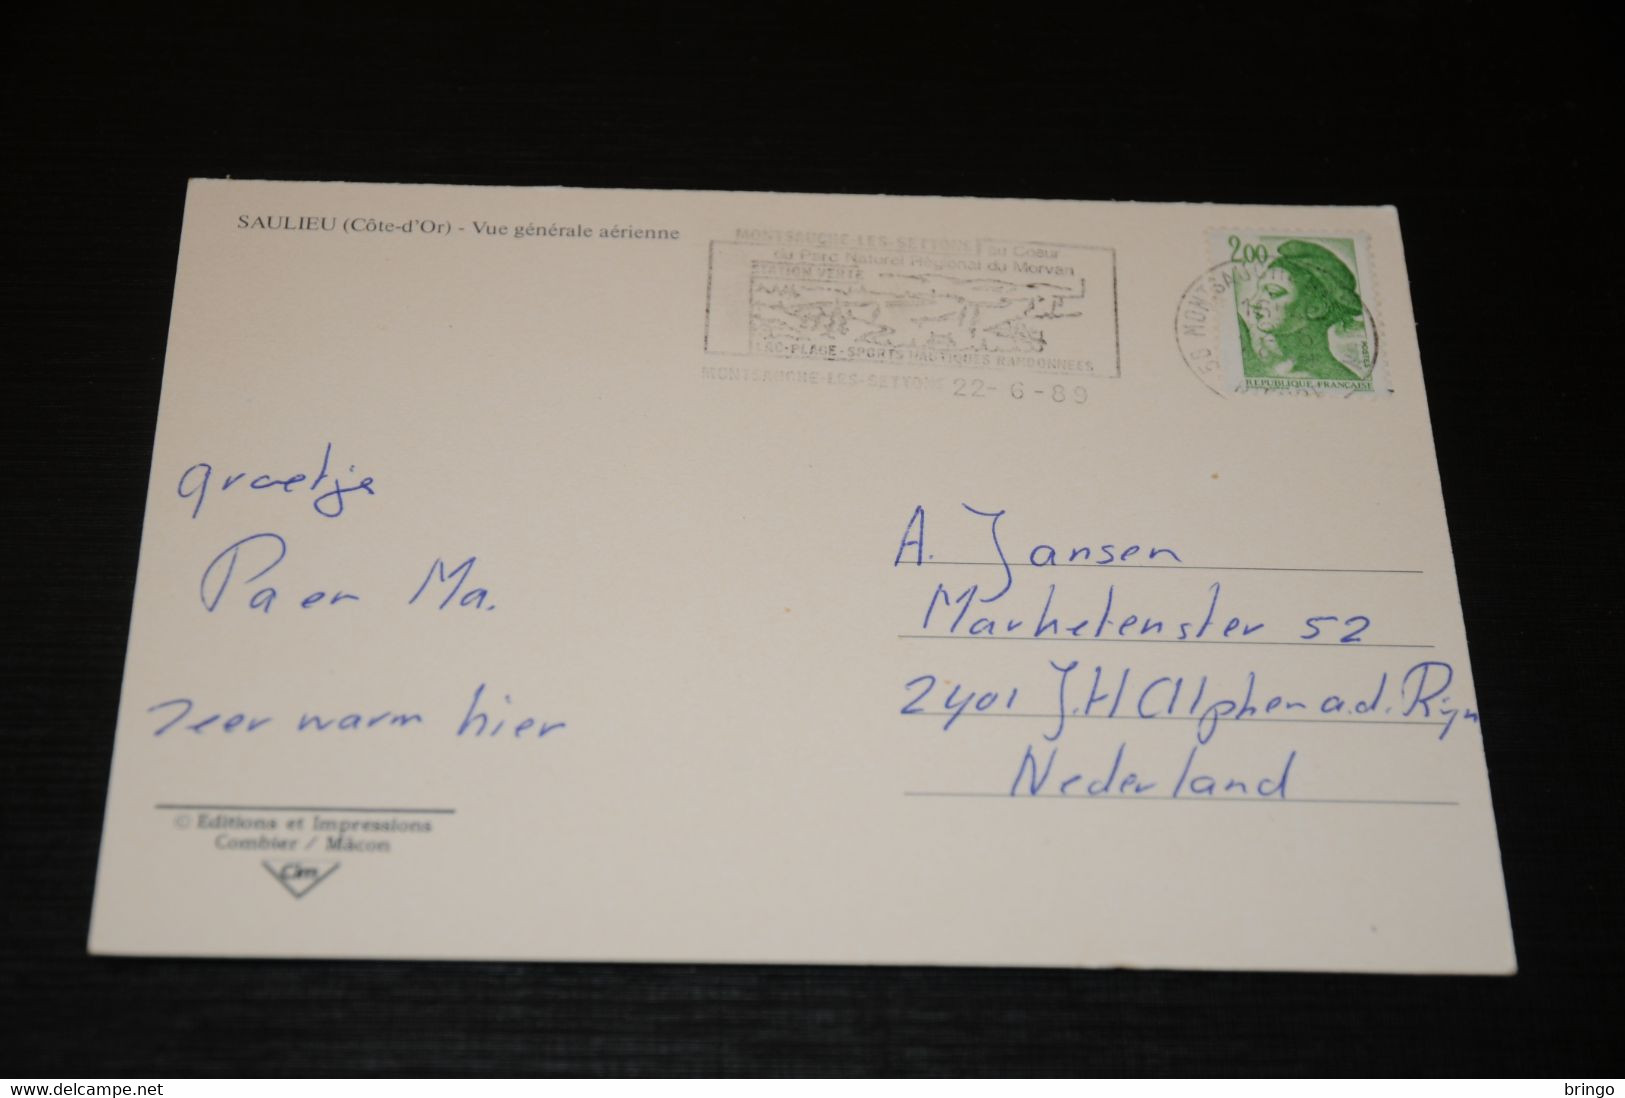 SAULIEU (Côte-d'Or) - Vue générale aérienne
MONTSAUCHE-LES-SETTONS au Coeur
du Parc Naturel Régional du Morvan
STATION VERTE
LAC-PLAGE-SPORTS NAUTIQUES RANDONNEES
MONTSAUCHE-LES-SETTONS 22-6-89
2.00
58 MONTSAUCHE
POSTES
REPUBLIQUE FRANÇAISE
groetjes
Pa en Ma.
zeer warm hier
A. Jansen
Marketenster 52
2401 J.H Alphen a.d. Rijn
Nederland
© Editions et Impressions
Combier / Mâcon
Cim
www.delcampe.net
bringo